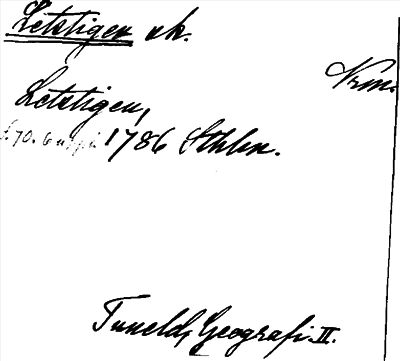 Letstigen sk.
Vrm.
Letstigen,
s. 70. 6 uppl. 1786 Sthlm.
Tuneld, Geografi. II.